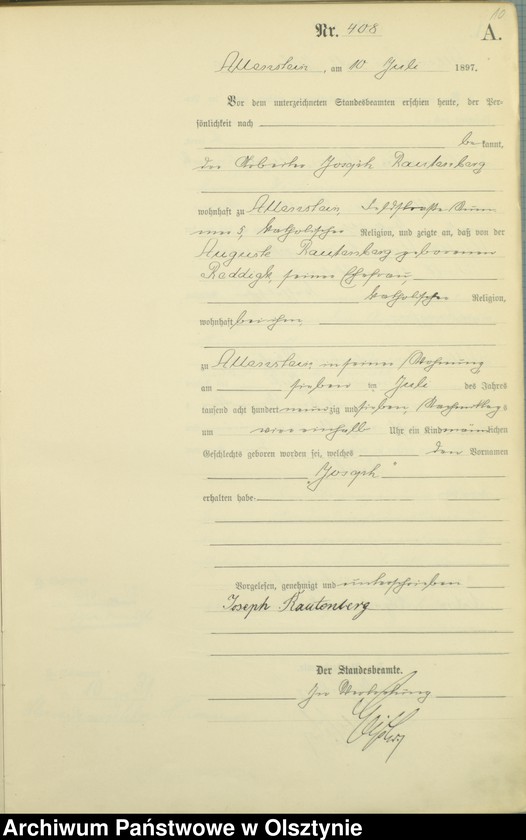 10
Nr. 408
A.
Allenstein, am 10 Juli 1897.
Vor dem unterzeichneten Standesbeamten erschien heute, der Per-
sönlichkeit nach
bekannt,
der Arbeiter Joseph Rautenberg
wohnhaft zu Allenstein, Feldstraße Num
mer 5, katholischer Religion, und zeigte an, daß von der
Auguste Rautenberg geborenen
Raddigk, seiner Ehefrau,
katholischer Religion,
wohnhaft bei ihm,
zu Allenstein, in seiner Wohnung
am sieben ten Juli des Jahres
tausend acht hundert neunzig und sieben Nachmittags
um einhalb Uhr ein Kind männlichen
Geschlechts geboren worden sei, welches den Vornamen
„Joseph“
erhalten habe.
Vorgelesen, genehmigt und unterschrieben
Joseph Rautenberg
Der Standesbeamte.
In Vertretung
Archiwum Państwowe w Olsztynie